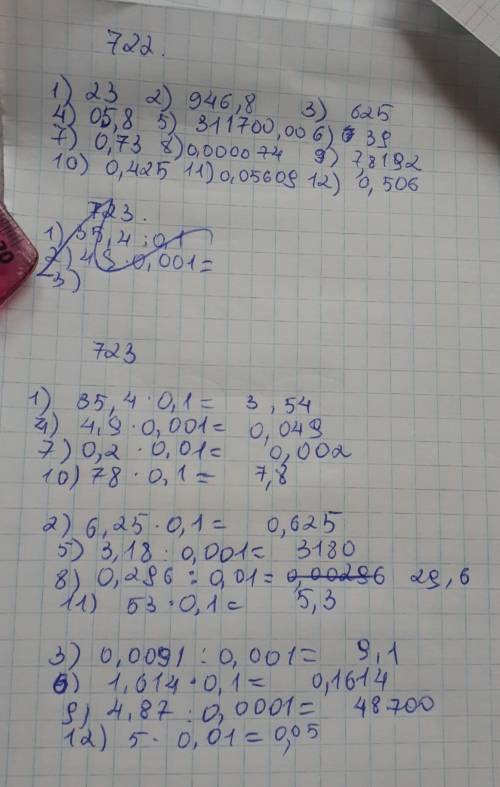 722.
1) 23 2) 946,8 3) 625
4) 05,8 5) 311700,00 6) 39
7) 0,73 8) 0,000074 9) 7,8192
10) 0,425 11) 0,05609 12) 0,506
723.
1) 35,4 : 0,1
2) 4,9 · 0,001 =
3)
723
1) 35,4 · 0,1 = 3,54
4) 4,9 · 0,001 = 0,049
7) 0,2 · 0,01 = 0,002
10) 78 · 0,1 = 7,8
2) 6,25 · 0,1 = 0,625
5) 3,18 : 0,001 = 3180
8) 0,296 : 0,01 = 0,00296 29,6
11) 53 · 0,1 = 5,3
3) 0,0091 : 0,001 = 9,1
6) 1,614 · 0,1 = 0,1614
9) 4,87 : 0,0001 = 48700
12) 5 · 0,01 = 0,05